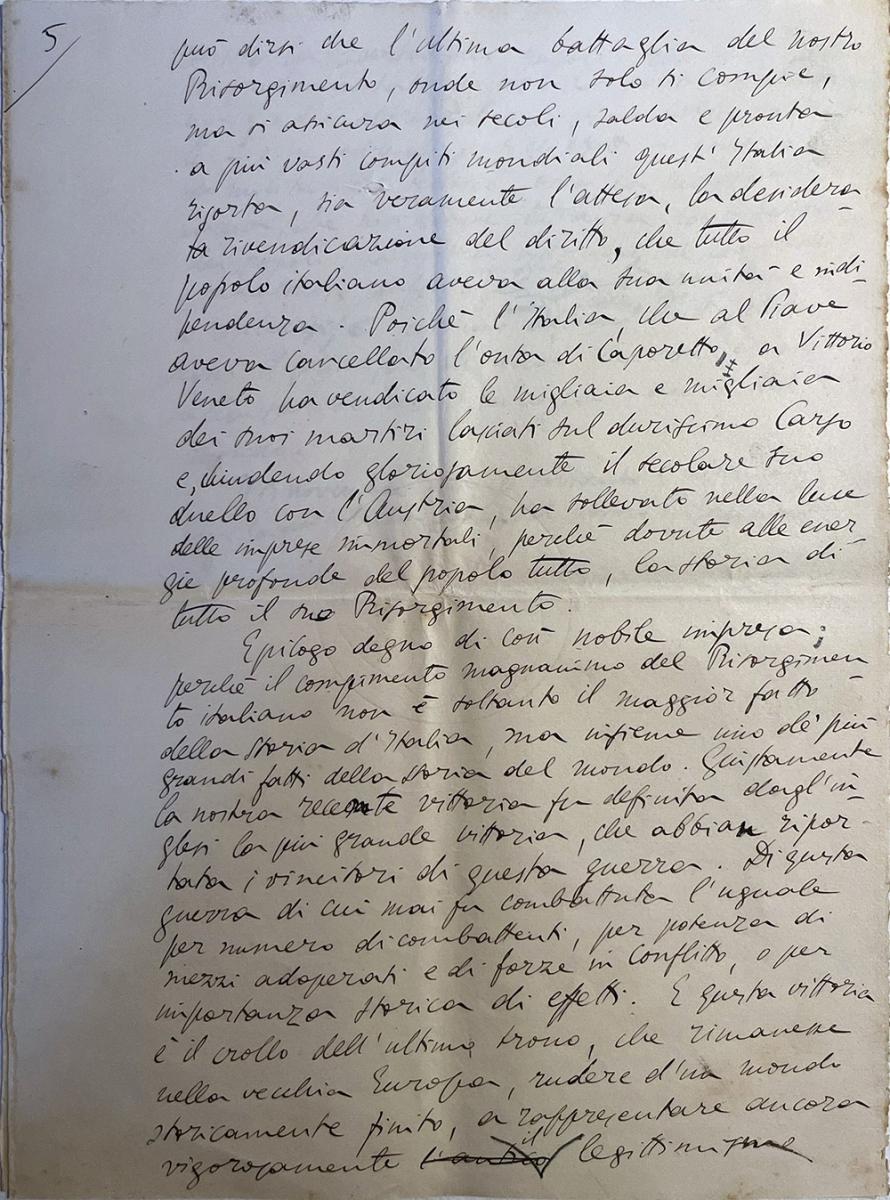 5
può dirsi che l'ultima battaglia del nostro
Risorgimento, onde non solo si compie,
ma si assicura nei secoli, salda e pronta
a più vasti compiti mondiali quest'Italia
risorta, sia veramente l'attesa, la desidera-
ta rivendicazione del diritto, che tutto il
popolo italiano aveva alla sua unità e indi-
pendenza. Poichè l'Italia, che al Piave
aveva cancellato l'onta di Caporetto, a Vittorio
Veneto ha vendicato le migliaia e migliaia
dei suoi martiri lasciati sul durissimo Carso
e, chiudendo gloriosamente il secolare suo
duello con l'Austria, ha sollevato nella luce
delle imprese immortali, perchè dovute alle ener-
gie profonde del popolo tutto, la storia di
tutto il suo Risorgimento.
Epilogo degno di così nobile impresa;
perchè il compimento magnanimo del Risorgimen-
to italiano non è soltanto il maggior fatto
della storia d'Italia, ma insieme uno de' più
grandi fatti della storia del mondo. Giustamente
la nostra recente vittoria fu definita dagl'in-
glesi la più grande vittoria, che abbian ripor-
tata i vincitori di questa guerra. Di questa
guerra di cui mai fu combattuta l'uguale
per numero di combattenti, per potenza di
mezzi adoperati e di forze in conflitto, o per
importanza storica di effetti. E questa vittoria
è il crollo dell'ultimo trono, che rimanesse
nella vecchia Europa, rudere d'un mondo
storicamente finito, a rappresentare ancora
vigorosamente l'antico il legittimismo